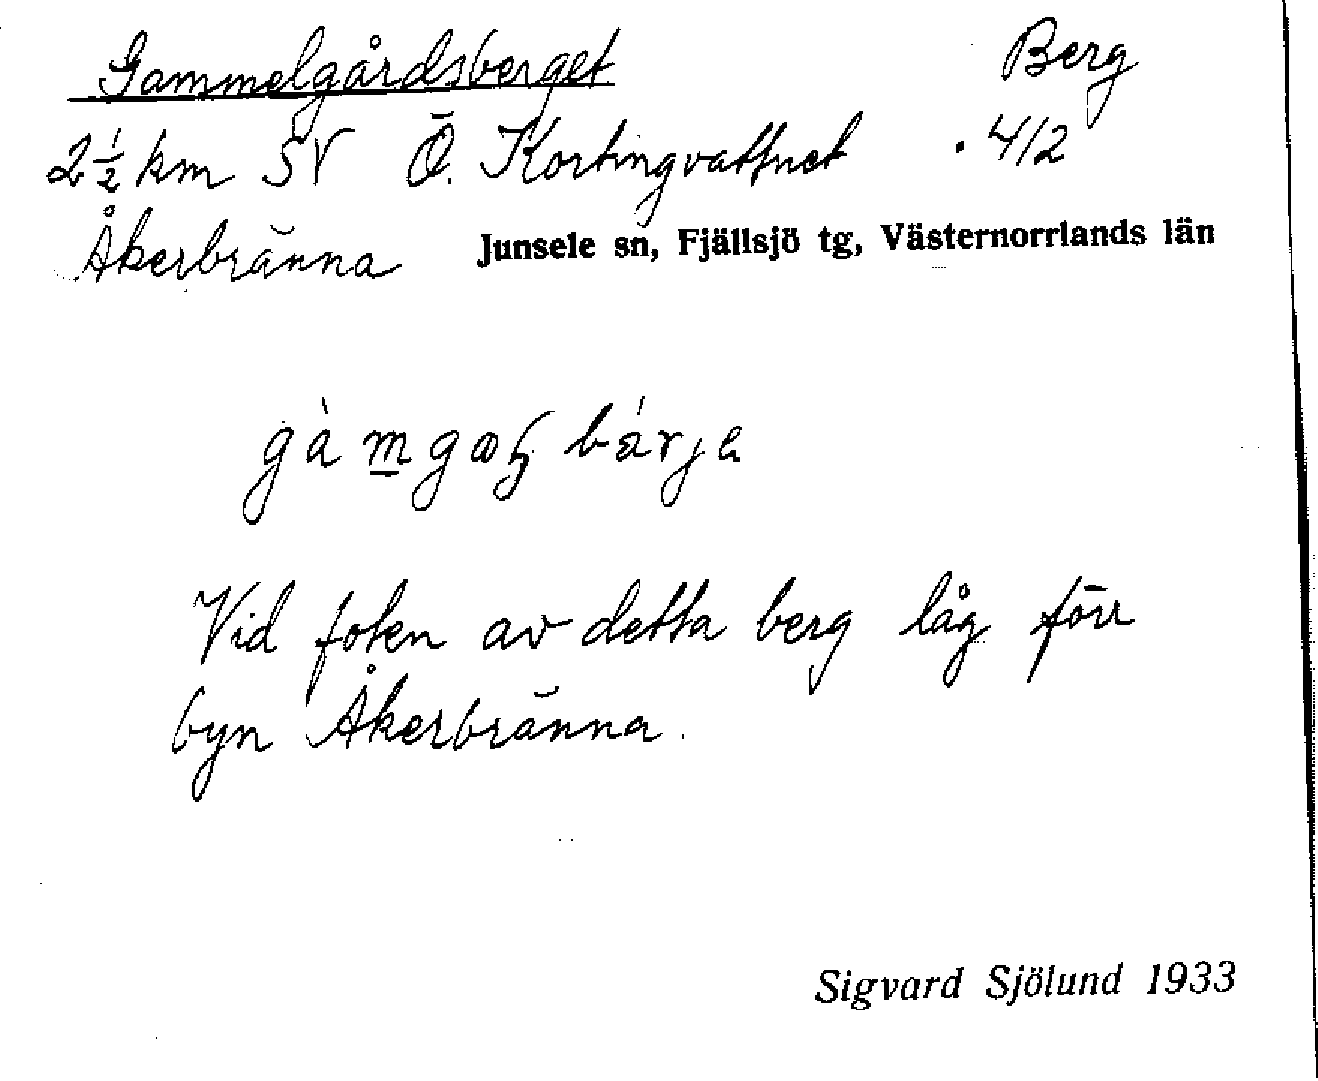 Gammelgårdsberget Berg
2½ km SV Ö. Kortingvattnet . 412
Åkerbränna Junsele sn, Fjällsjö tg, Västernorrlands län
Vid foten av detta berg låg förr
byn Åkerbränna.
Sigvard Sjölund 1933